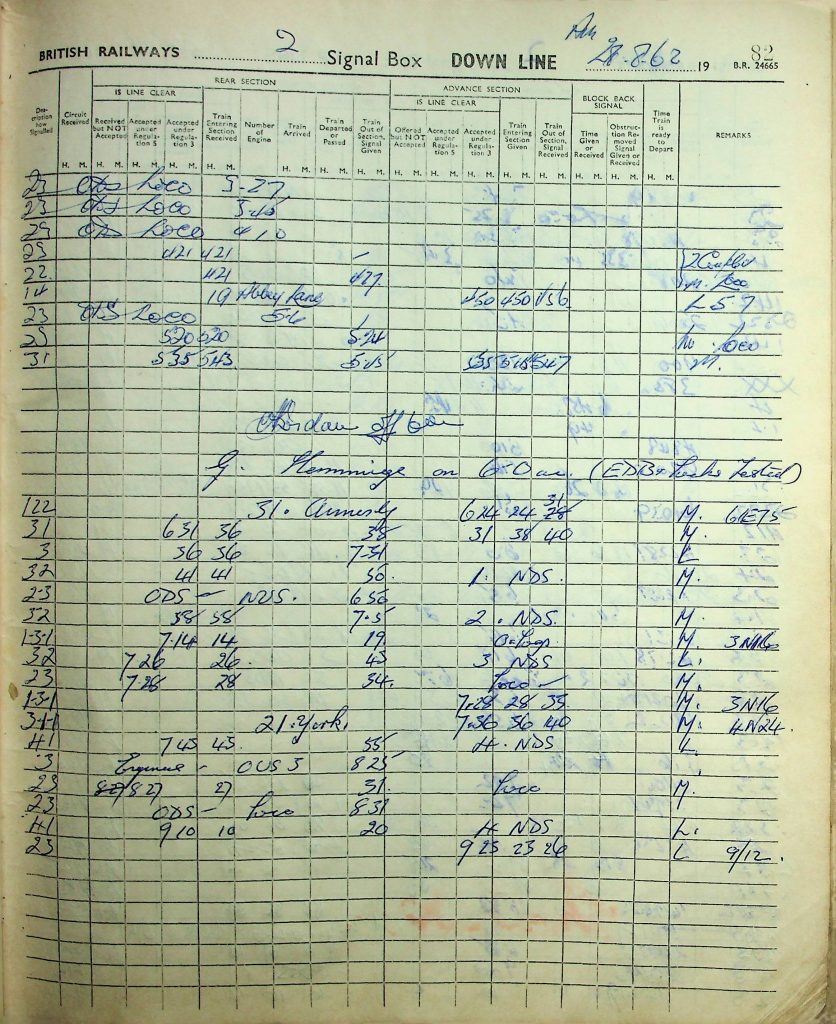 BRITISH RAILWAYS 2 Signal Box DOWN LINE 28.8.62 19 82
B.R. 24665
REAR SECTION ADVANCE SECTION
IS LINE CLEAR IS LINE CLEAR BLOCK BACK SIGNAL
Description how Signalled Circuit Received Received but NOT Accepted Accepted under Regulation 5 Accepted under Regulation 3 Train Entering Section Received Number of Engine Train Arrived Train Departed or Passed Train Out of Section, Signal Given Offered but NOT Accepted Accepted under Regulation 5 Accepted under Regulation 3 Train Entering Section Given Train Out of Section, Signal Received Time Given or Received Obstruction Removed Signal Given or Received Time Train is ready to Depart REMARKS
H. M. H. M. H. M. H. M. H. M. H. M. H. M. H. M. H. M. H. M. H. M. H. M. H. M. H. M. H. M. H. M.
23 ODS Loco 3-27
23 ODS Loco 3-45
23 ODS Loco 4 10
23 421 421
22 421 427 Loco
14 19 Abbey Lane 450 450 456 L 5-7
23 ODS Loco 5-6
23 520 520 5-24 Loco
31 535 543 5-45 535 545 547 M.
off
G. Hemmings on 6-0 am. (EDB & Locks Tested)
122 31. Annesly 624 24 28 31 M. 6E75
31 631 36 38 31 38 40 M.
3 36 36 7-31 L
32 41 41 50. 1. NDS. M.
2-3 ODS - NDS. 6 56
32 58 58 7-5 2. NDS. M.
1-3-1 7-14 14 19. M. 3N16
32 7 26 26. 43 3 NDS L.
23 7 28 28 34. Loco - M.
1-3-1 7-28 28 35 M. 3N16
3-1-1 21. York. 7-36 36 40 M. 4N24.
41 7 43 43. 55 4. NDS L
3 Engine - 8 25
23 827 8 27 27 31. Loco M.
23 ODS - Loco 8-31
41 9 10 10 20 4 NDS L.
23 9 23 23 26 L 9/12.